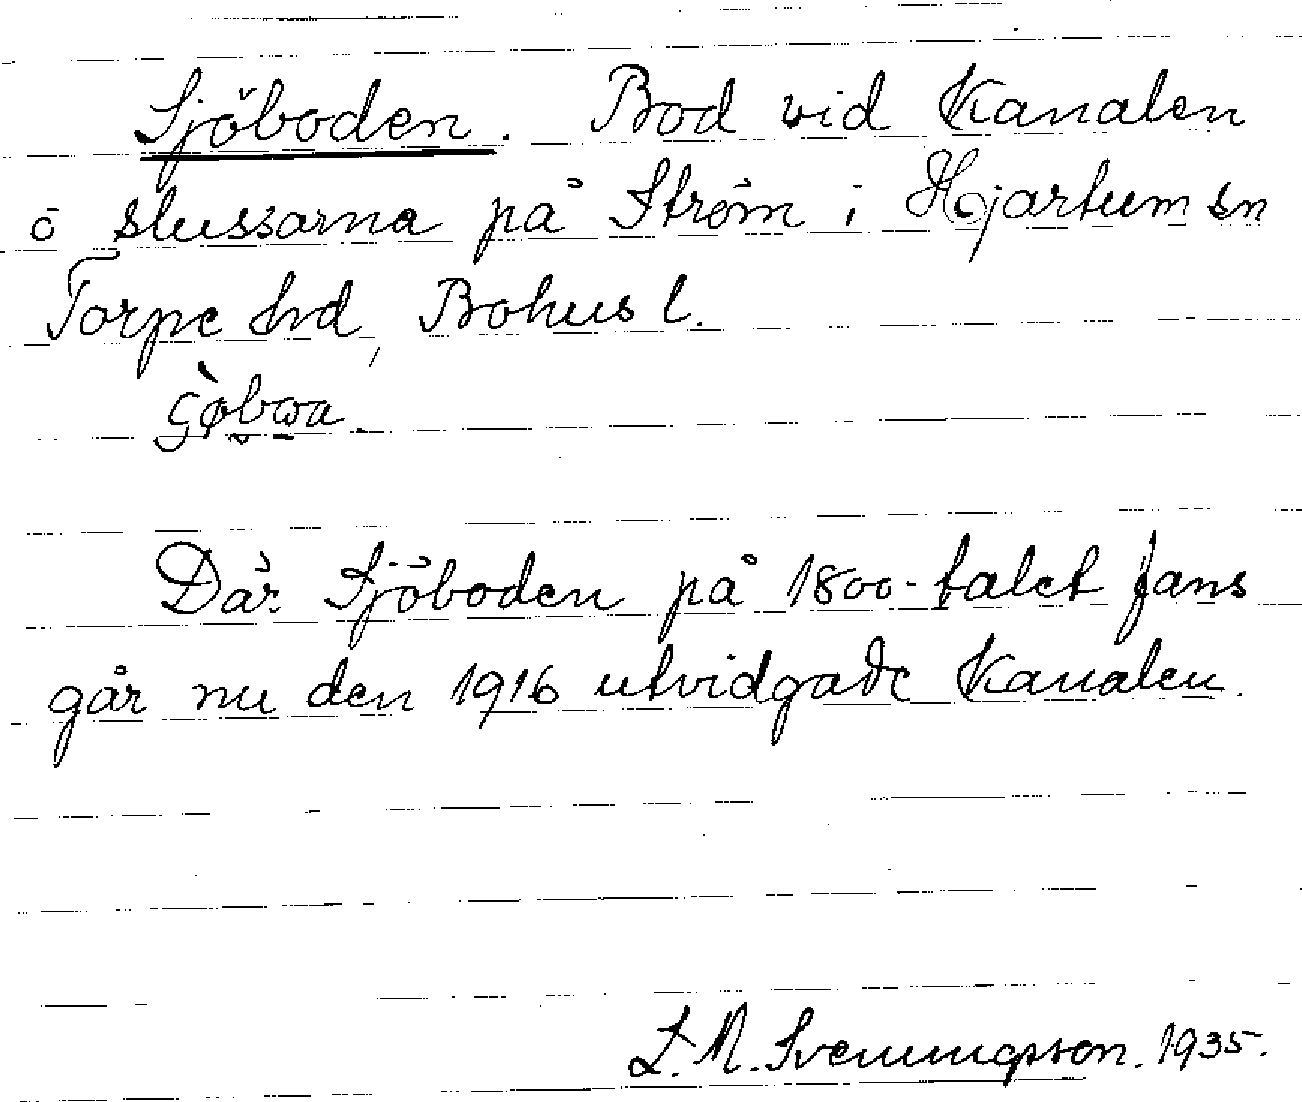 Sjöboden. Bod vid Kanalen
ö slussarna på Ström i Hjärtum sn
Torpe hd, Bohus l.
Där Sjöboden på 1800-talet fans
går nu den 1916 utvidgade Kanalen.
L. M. Svenungsson. 1935.